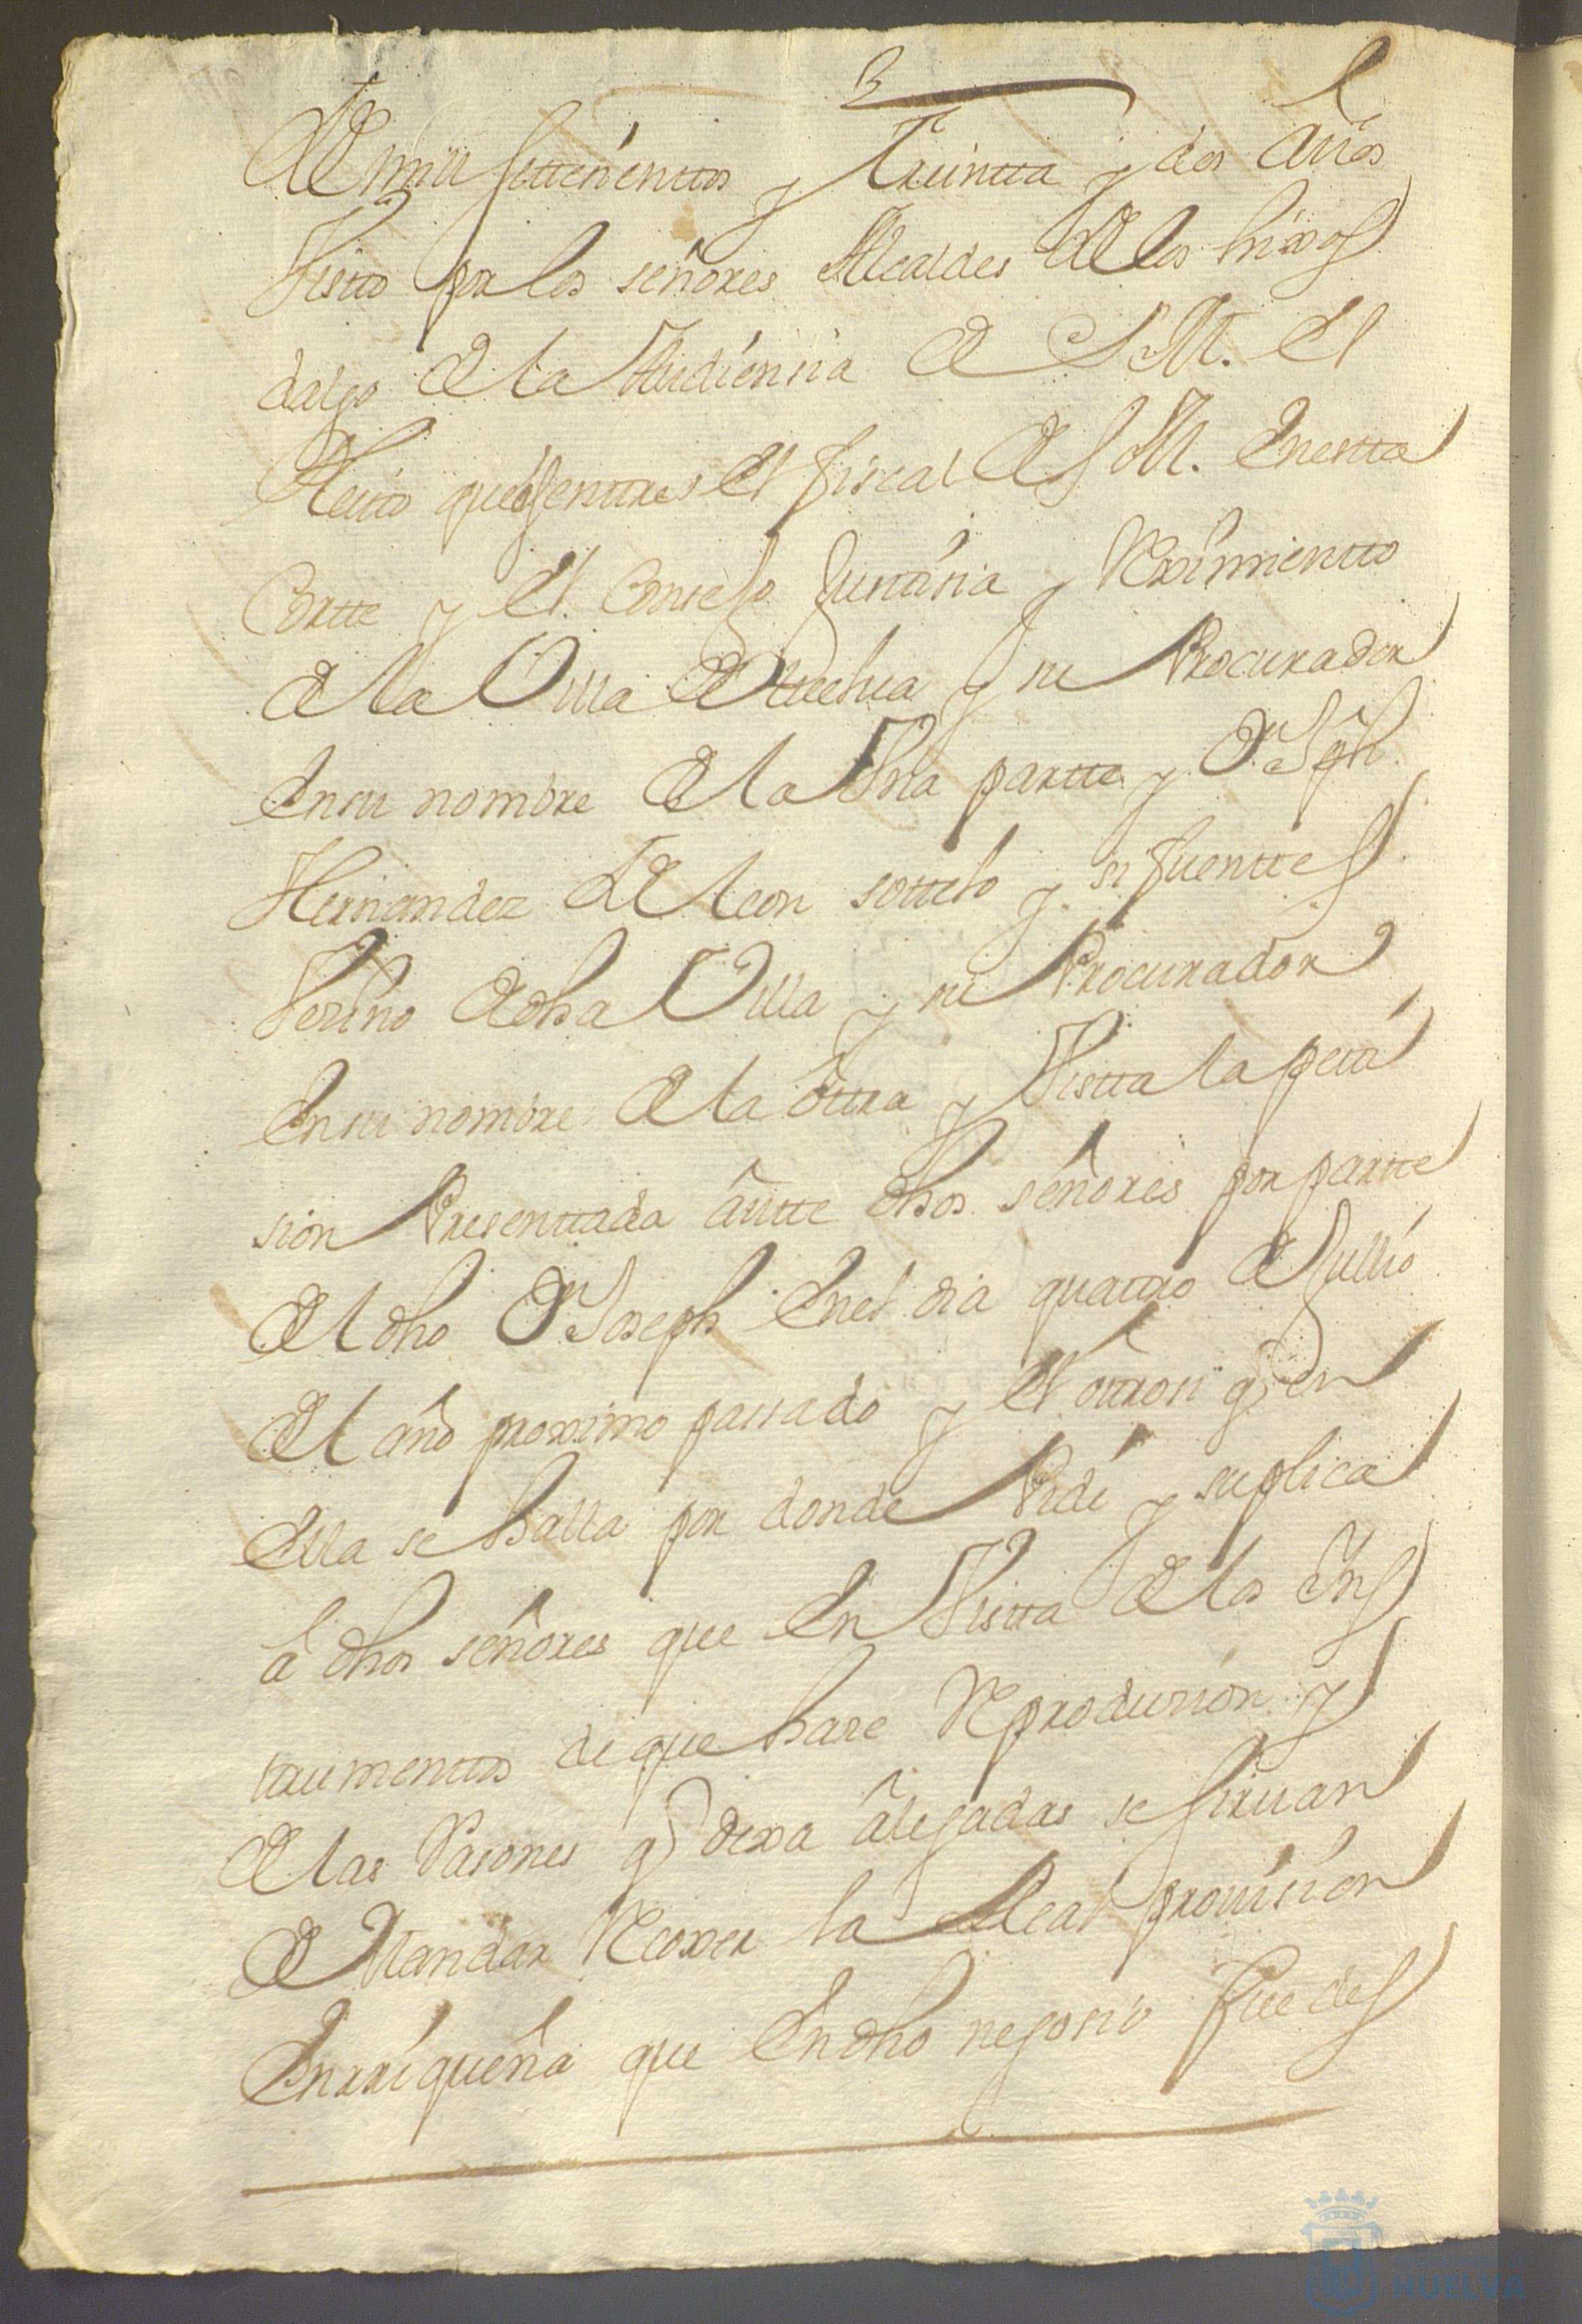 de mill settesenttos y Treintta y dos años
Visto por los señores Alcaldes de los hixos
dalgo de la Audiensia de S.M. el
Pleito que es entre el fiscal de S.M. en estta
Cortte y el Consejo Justisia y Reximientto
de la Villa de Huelua y su Procurador
en su nombre de la Vna partte y Dn Jph.
Hernandez de Leon sottelo y sifuentes
Vezino de dha Villa y su Procurador
en su nombre de la ottra y Vistta la peti
sion Presenttada antte dhos señores por partte
del dho Dn Joseph en el dia quattro de Jullio
del año proximo passado y el ottrosi q en
ella se halla por donde Pide y suplica
a dhos señores que en Vistta de los Ins
trumenttos de que hase Reprodusion y
de las Rasones q dexa alegadas se siruan
de Mandar Recoxer la Real prouision
Enrriqueña que en dho negosio fue des
HUELVA